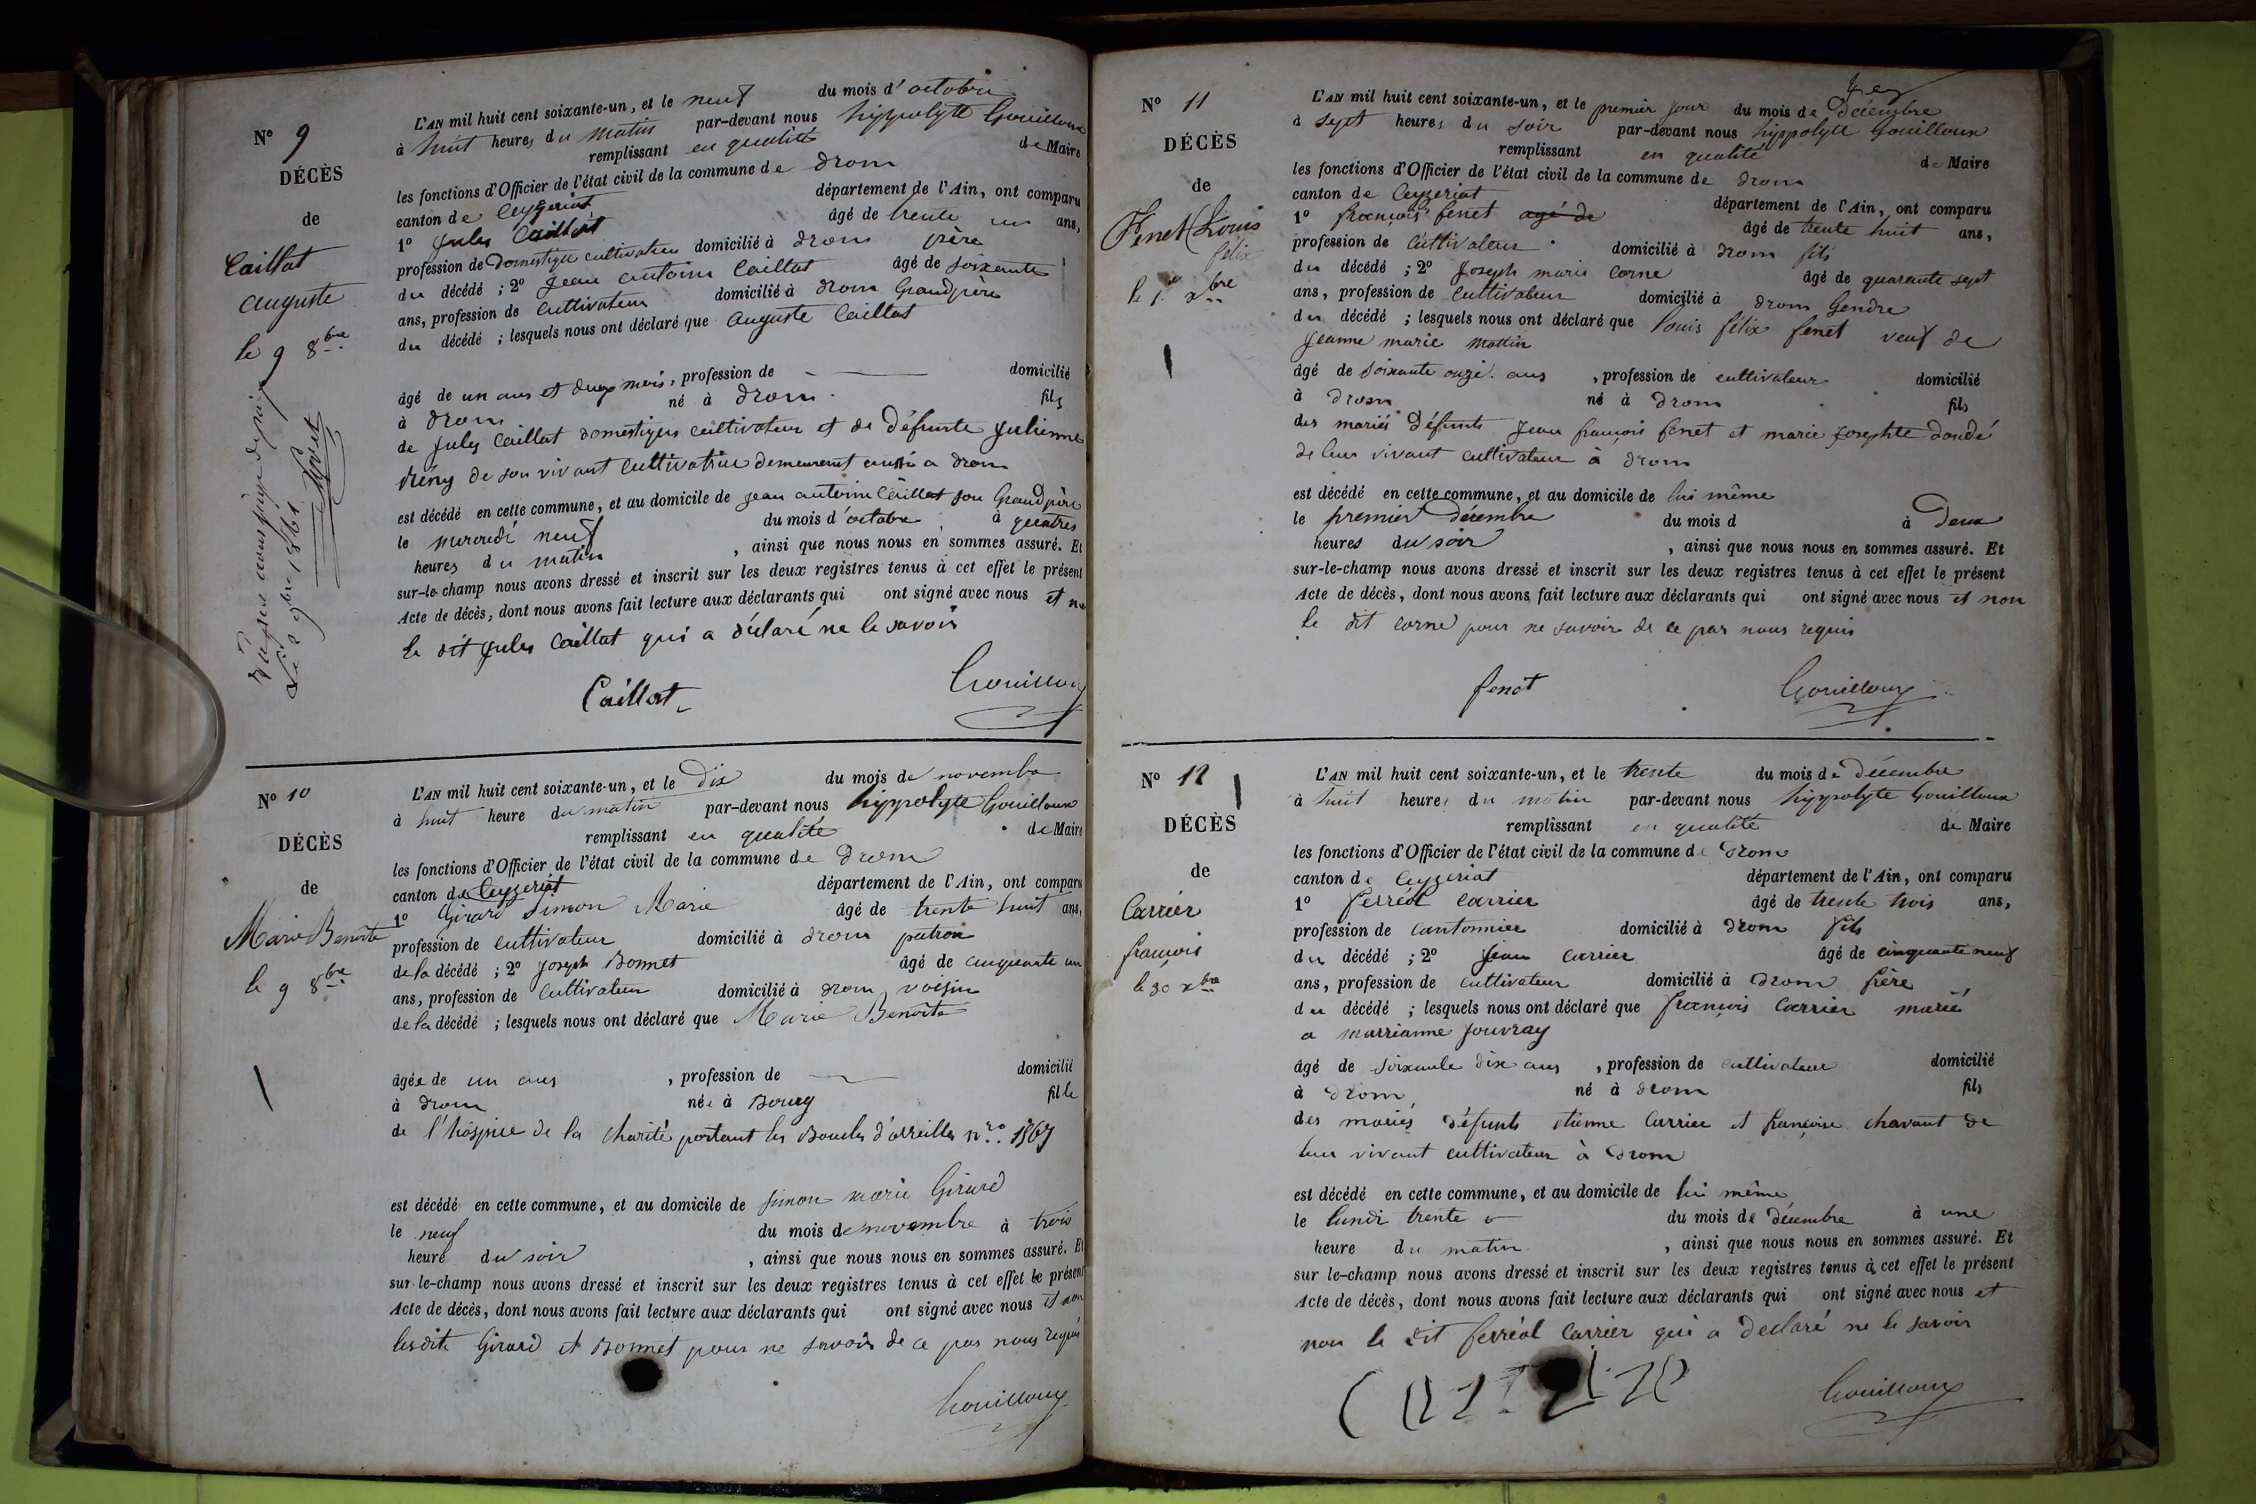 N° 9
DÉCÈS
de
Caillat
auguste
le 9 8bre
Vu par nous juge de paix
Le 2 9bre 1861
L'AN mil huit cent soixante-un, et le neuf du mois d'octobre
à huit heures du matin par-devant nous hippolyte Gouilloux
remplissant en qualité de Maire
les fonctions d'Officier de l'état civil de la commune de drom
canton de Ceyzeriat département de l'Ain, ont comparu
1° Jules Caillat âgé de trente un ans,
profession de domestique cultivateur domicilié à drom père
du décédé ; 2° Jean antoine Caillat âgé de soixante
ans, profession de cultivateur domicilié à drom Grandpère
du décédé ; lesquels nous ont déclaré que Auguste Caillat
âgé de un ans et deux mois, profession de domicilié
à drom né à drom. fils
de Jules Caillat domestique cultivateur et de défunte Julienne
de son vivant cultivatrice demeurant aussi a drom
est décédé en cette commune, et au domicile de jean antoine Caillat son Grandpère
le mercredi neuf du mois d'octobre à quatres
heures du matin , ainsi que nous nous en sommes assuré. Et
sur-le-champ nous avons dressé et inscrit sur les deux registres tenus à cet effet le présent
Acte de décès, dont nous avons fait lecture aux déclarants qui ont signé avec nous et
le dit Jules Caillat qui a déclaré ne le savoir
Caillat Gouilloux
N° 10
DÉCÈS
de
Marie Benoite
le 9 8bre
L'AN mil huit cent soixante-un, et le dix du mois de novembre
à huit heure du matin par-devant nous hippolyte Gouilloux
remplissant en qualité de Maire
les fonctions d'Officier de l'état civil de la commune de Drom
canton de Ceyzeriat département de l'Ain, ont comparu
1° Girard Simon Marie âgé de trente huit ans,
profession de cultivateur domicilié à drom patron
de la décédé ; 2° Joseph Bonnet âgé de cinquante un
ans, profession de cultivateur domicilié à drom voisin
de la décédé ; lesquels nous ont déclaré que Marie Benoite
âgée de un ans , profession de domicilié
à drom née à Bourg fille
de l'hospice de la charité portant les Boucles d'orreilles nro. 1567
est décédé en cette commune, et au domicile de simon marie Girard
le neuf du mois de novembre à trois
heure du soir , ainsi que nous nous en sommes assuré. Et
sur-le-champ nous avons dressé et inscrit sur les deux registres tenus à cet effet le présent
Acte de décès, dont nous avons fait lecture aux déclarants qui ont signé avec nous et non
lesdits Girard et Bonnet pour ne savoir de ce par nous requis
Gouilloux
N° 11
DÉCÈS
de
Fenet Louis
félix
le 1er xbre
L'AN mil huit cent soixante-un, et le premier jour du mois de Décembre
à sept heures du soir par-devant nous hippolyte Gouilloux
remplissant en qualité de Maire
les fonctions d'Officier de l'état civil de la commune de drom
canton de Ceyzeriat département de l'Ain, ont comparu
1° françois fenet agé de âgé de trente huit ans,
profession de cultivateur domicilié à drom fils
du décédé ; 2° Joseph marie Corne âgé de quarante sept
ans, profession de cultivateur domicilié à drom Gendre
du décédé ; lesquels nous ont déclaré que Louis félix fenet veuf de
Jeanne marie
âgé de soixante onze ans , profession de cultivateur domicilié
à drom né à drom fils
des mariés défunts Jean françois fenet et marie Josephte
de leur vivant cultivateur à drom
est décédé en cette commune, et au domicile de lui même
le premier décembre du mois d à Deux
heures du soir , ainsi que nous nous en sommes assuré. Et
sur-le-champ nous avons dressé et inscrit sur les deux registres tenus à cet effet le présent
Acte de décès, dont nous avons fait lecture aux déclarants qui ont signé avec nous et non
le dit corne pour ne savoir de ce par nous requis
fenet Gouilloux
N° 12
DÉCÈS
de
Carrier
françois
le 30 xbre
L'AN mil huit cent soixante-un, et le trente du mois de Décembre
à huit heures du matin par-devant nous hippolyte Gouilloux
remplissant en qualité de Maire
les fonctions d'Officier de l'état civil de la commune de Drom
canton de Ceyzeriat département de l'Ain, ont comparu
1° ferréol Carrier âgé de trente trois ans,
profession de cantonnier domicilié à drom fils
du décédé ; 2° Jean carrier âgé de cinquante neuf
ans, profession de cultivateur domicilié à Drom frère
du décédé ; lesquels nous ont déclaré que françois Carrier marié
a marrianne Jouvray
âgé de soixante dix ans , profession de cultivateur domicilié
à Drom né à drom fils
des mariés défunts etienne Carrier et françoise chavant de
leur vivant cultivateur à Drom
est décédé en cette commune, et au domicile de lui même
le lundi trente du mois de décembre à une
heure du matin , ainsi que nous nous en sommes assuré. Et
sur le-champ nous avons dressé et inscrit sur les deux registres tenus à cet effet le présent
Acte de décès, dont nous avons fait lecture aux déclarants qui ont signé avec nous et
non le dit ferréol Carrier qui a declaré ne le savoir
Gouilloux